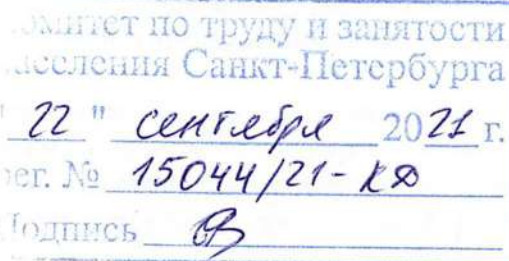 омитет по труду и занятости
населения Санкт-Петербурга
"22" сентября 2021 г.
рег. № 15044/21-КД
Подпись